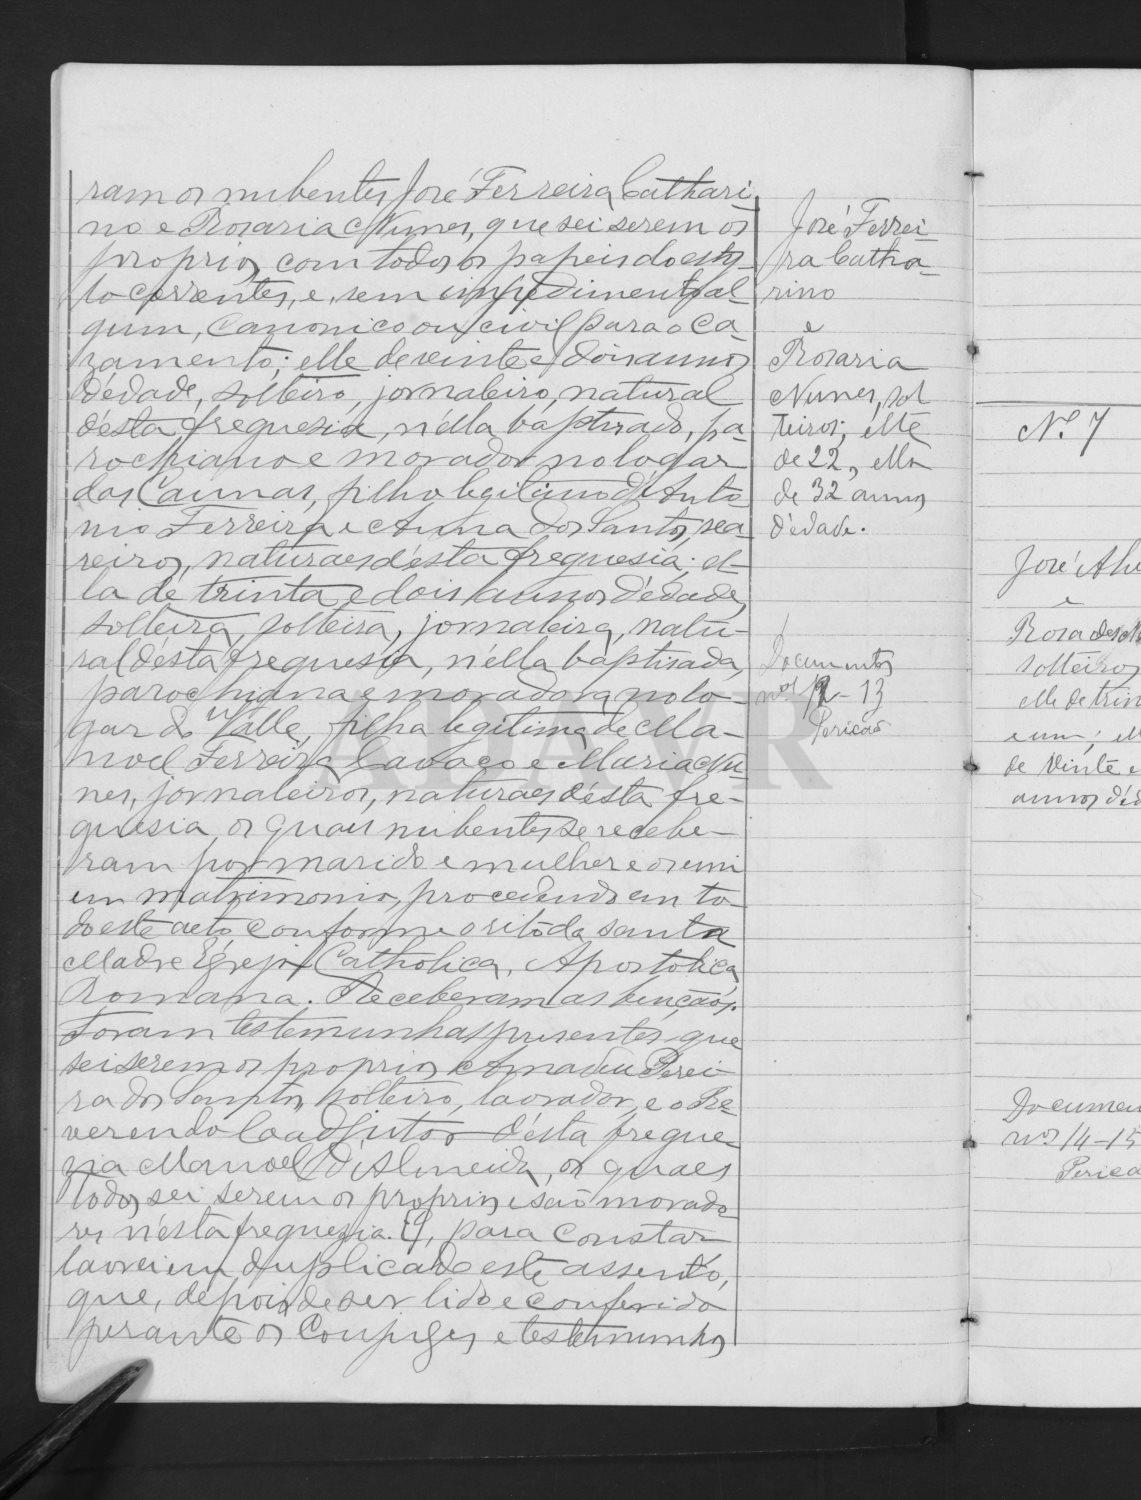 ram os nubentes José Ferreira Cathari-
no e Rosaria Nunes, que sei serem os
proprios, com todos os papeis do esty-
lo correntes, e, sem impedimento al-
gum, canonico ou civil para o ca-
zamento; elle de veinte e dois annos
d'edade, solteiro, jornaleiro, natural
d'ésta freguesia, n'élla baptisado, pa-
rochiano e morador no logar
das Caunas, filho legitimo de Anto-
nio Ferreira e Anna dos Santos, sea-
reiros, naturaes d'ésta freguesia; el-
la de trinta e dois annos d'édade,
solteira, solteira, jornaleira, natu-
ral d'ésta freguesia, n'élla baptisada,
parochiana e moradora no lo-
gar do Valle, filha legitima de Ma-
noel Ferreira Cavaco e Maria Nu-
nes, jornaleiros, naturaes d'ésta fre-
guesia, os quaes nubentes se recebe-
ram por marido e mulher e os uni
em matrimonio, procedendo em to-
do este acto conforme o rito da santa
Madre Egreja Catholica, Apostolica
Romana. Receberam as bençãos.
Foram testemunhas presentes que
sei serem os proprios Amadeu Perei-
ra dos Santos, solteiro, lavrador, e o Re-
verendo Coadjutor d'ésta fregue-
zia Manoel d'Almeida, os quaes
todos sei serem os proprios e são morado-
res n'ésta freguezia. E, para constar
lavrei em duplicado este assento,
que, depois de ser lido e conferido
perante os conjuges e testemunhas
José Ferrei-
ra Catha-
rino
e
Rosaria
Nunes, sol
teiros; elle
de 22, ella
de 32 annos
d'édade.
Documentos
nos 12-13
Pericão
N.º 7
José Alve
e
Rosa de
solteiros
elle de trin
e um; el
de vinte e
annos d'éd
Documen
nos 14-15
Perica
ADAVR